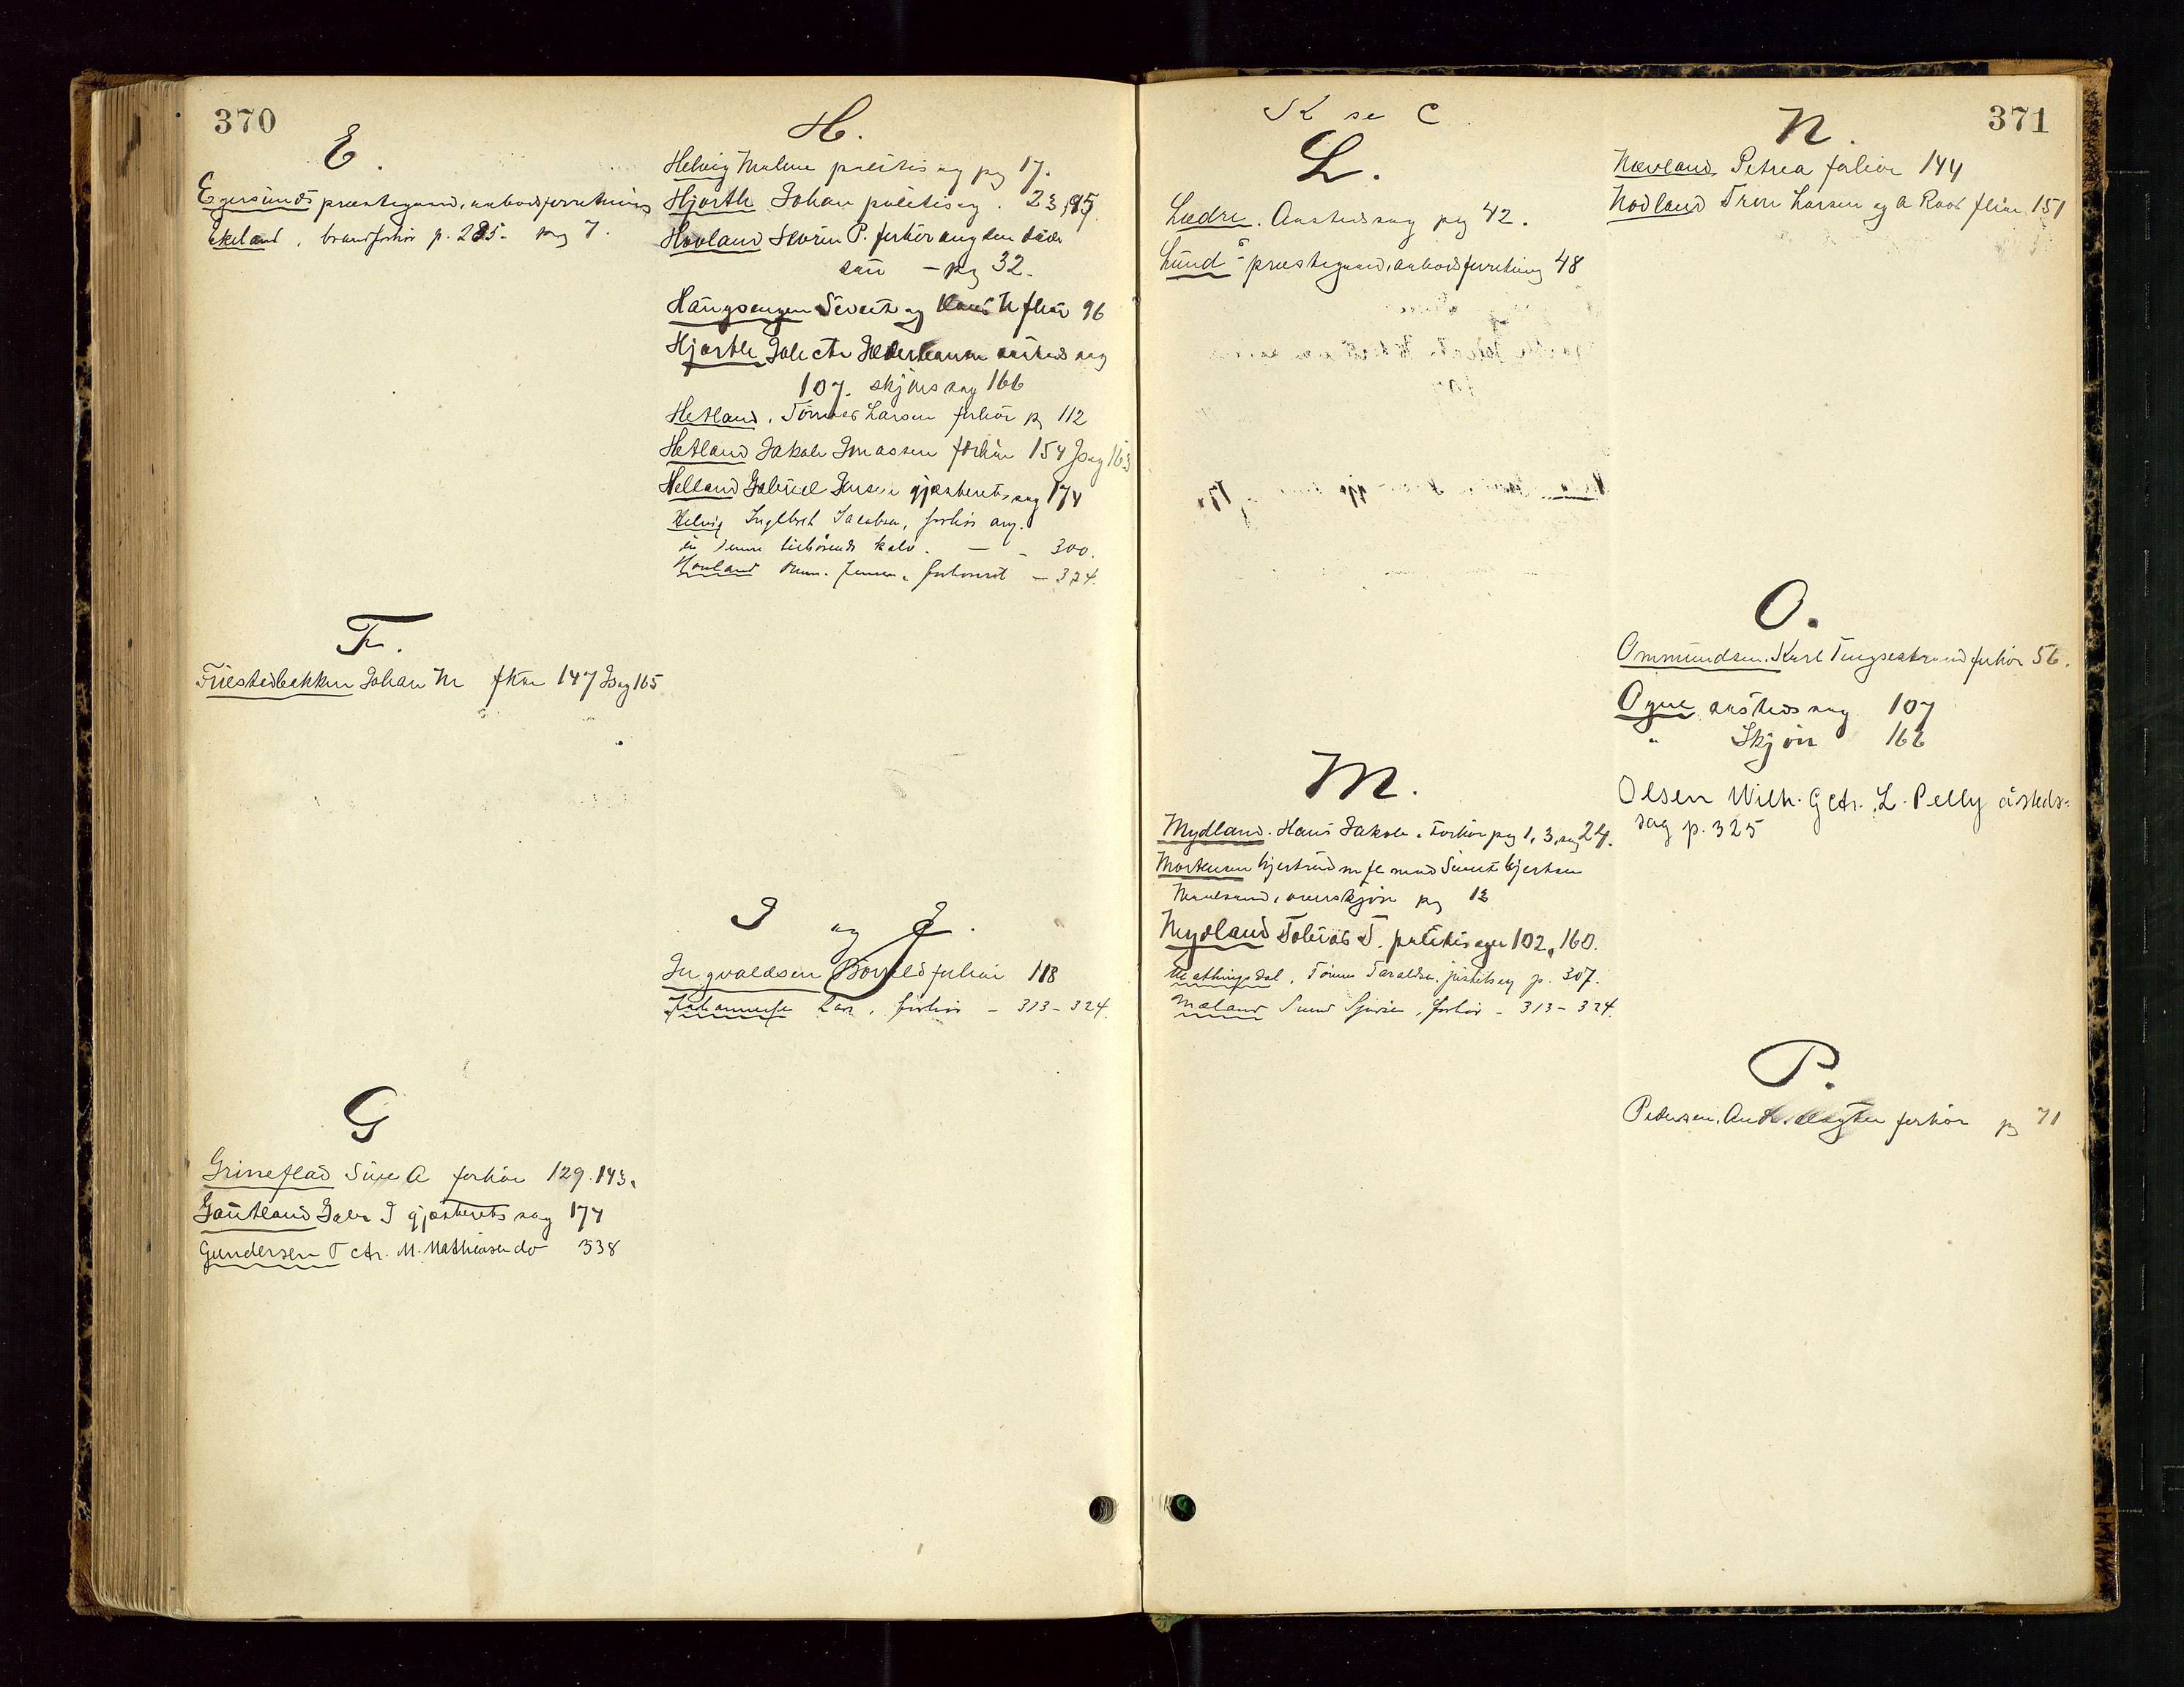 370
E.
Egersunds præstegaard, anbodsforretning
Ekeland, brandforhør p. 285. pag 7.
F.
Johan M fhør 147 Jsag 165
G
Grineflad Sive A forhør 129. 143.
Gautland Gabr I gjesteretssag 174
Gundersen T ctr. M. Mathiasen do 338
H.
Helvig Malene politisag pag 17.
Hjorth Johan politisag. 23, 95
Hovland Søren P. forhør ang den døde
søn - pag 32.
Haugsengen Sivert og M fhør 96
Hjorth Joh ctr aastedssag
107. skjønssag 166
Hetland, Tønnes Larsen forhør pg 112
Hetland Jakob Jonassen forhør 154 Jsag 163
Helland Gabriel Jensen gjesteretssag 174
Helvig Ingebret Jacobsen, forhør ang.
en denne tilhørende kalv. - - 300.
Hovland forhørsret - 324.
I og J.
Ingvaldsen forhør 118
Johannesen Lars, forhør - 313 - 324.
371
K se C
L.
Lædre. Aastedssag pag 42.
Lund's præstegaard, anbodsforretning 48
M.
Mydland. Hans Jakob. Forhør pag 1, 3, sag 24.
Mortensen Gjertrud m fl mod Sivert Gjertsen
overskjøn pg 13
Mydland Tobias T. politisager 102, 160.
Mathingsdal, Tønnes Taraldsen, justitssag p. 307.
Mæland forhør - 313 - 324.
N.
Nævland Petrea forhør 144
Nodland Tron Larsen og A Roos fhør 151
O.
Ommundsen. Karl Tengsestrand forhør 56.
Ogne aastedssag 107
" Skjøn 166
Olsen Wilh. G ctr. L. Pelly åsteds-
sag p. 325
P.
Pedersen, forhør pg 71